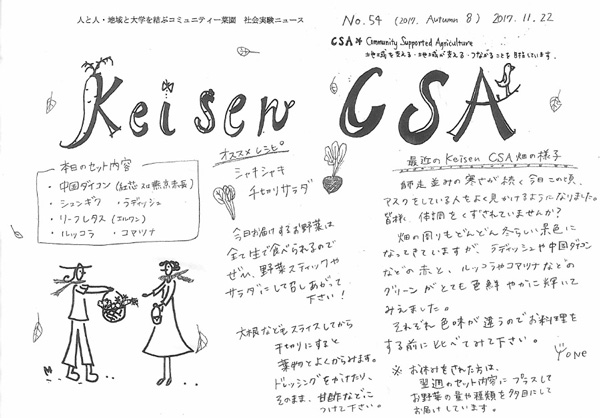 人と人・地域と大学を結ぶコミュニティー菜園 社会実験ニュース
No.54 (2017. Autumn 8) 2017.11.22
CSA* Community Supported Agriculture
地域を支える・地域が支える・つながることを目指しています。
Keisen CSA
本日のセット内容
・中国ダイコン(紅芯又は燕京赤長)
・シュンギク ・ラディッシュ
・リーフレタス(エルワン)
・ルッコラ ・コマツナ
オススメレシピ
シャキシャキ
千切りサラダ
今日お届けするお野菜は
全て生で食べられるので
ぜひ、野菜スティックや
サラダにして召しあがって
下さい!
大根などもスライスしてから
千切りにすると
葉物とよくからみます。
ドレッシングをかけたり、
そのまま、甘酢などに
つけて下さい。
最近のKeisen CSA畑の様子
師走並みの寒さが続く今日この頃、
マスクをしている人をよく見かけるようになりました。
皆様、体調をくずされていませんか?
畑の周りもどんどん冬らしい景色に
なってきていますが、ラディッシュや中国ダイコン
などの赤と、ルッコラやコマツナなどの
グリーンがとても色鮮やかに輝いて
みえました。
それぞれ色味が違うのでお料理を
する前に比べてみて下さい。
YONE
※ お休けをされた方は、
翌週のセット内容にプラスして
お野菜の量や種類を多目にして
お届けしています。